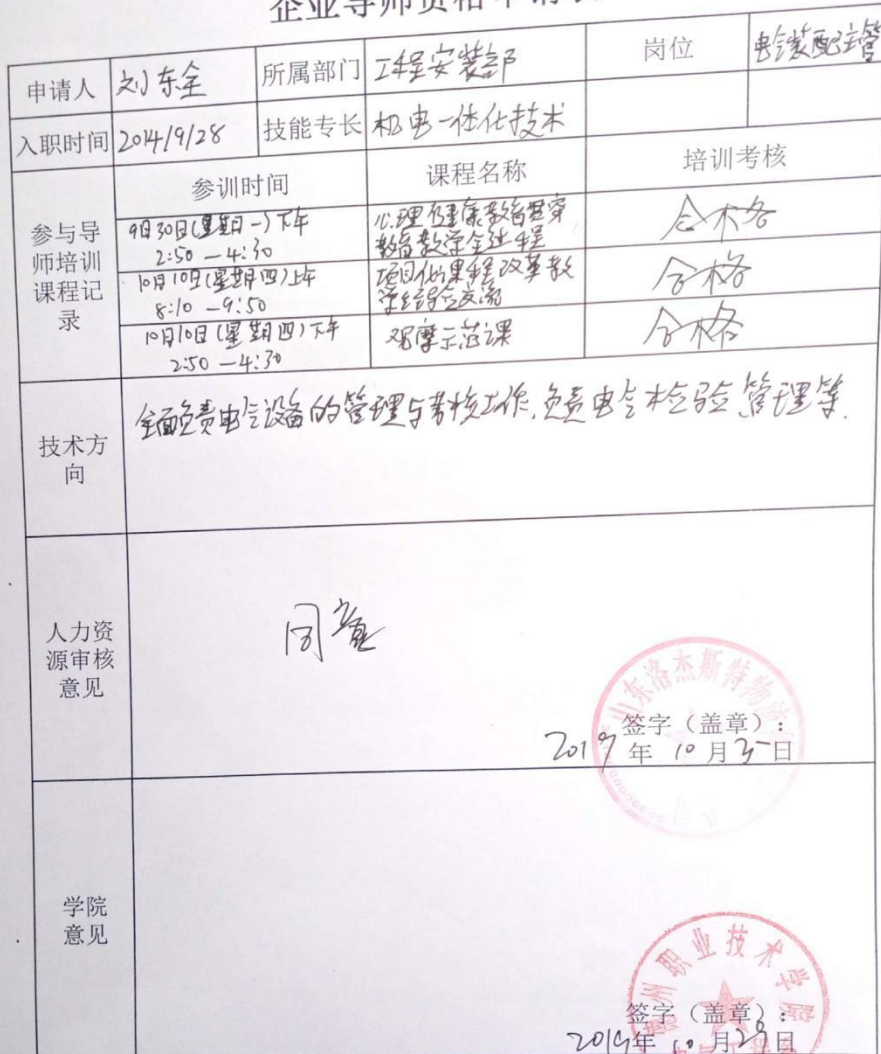 企业导师资格申请表
申请人 刘东全 所属部门 工程安装部 岗位 电气装配主管
入职时间 2014/9/28 技能专长 机电一体化技术
参训时间 课程名称 培训考核
参与导
师培训
课程记
录
9月30日(星期一)下午
2:50—4:30
心理健康教育贯穿
教育教学全过程
合格
10月10日(星期四)上午
8:10—9:50
项目化课程改革教
学经验交流
合格
10月10日(星期四)下午
2:50—4:30
观摩示范课
合格
技术方
向
全面负责电气设备的管理与考核工作,负责电气检验管理等.
人力资
源审核
意见
同意
山东洛杰斯特物流
签字(盖章):
2019年10月25日
学院
意见
州职业技术学院
签字(盖章):
2019年10月28日